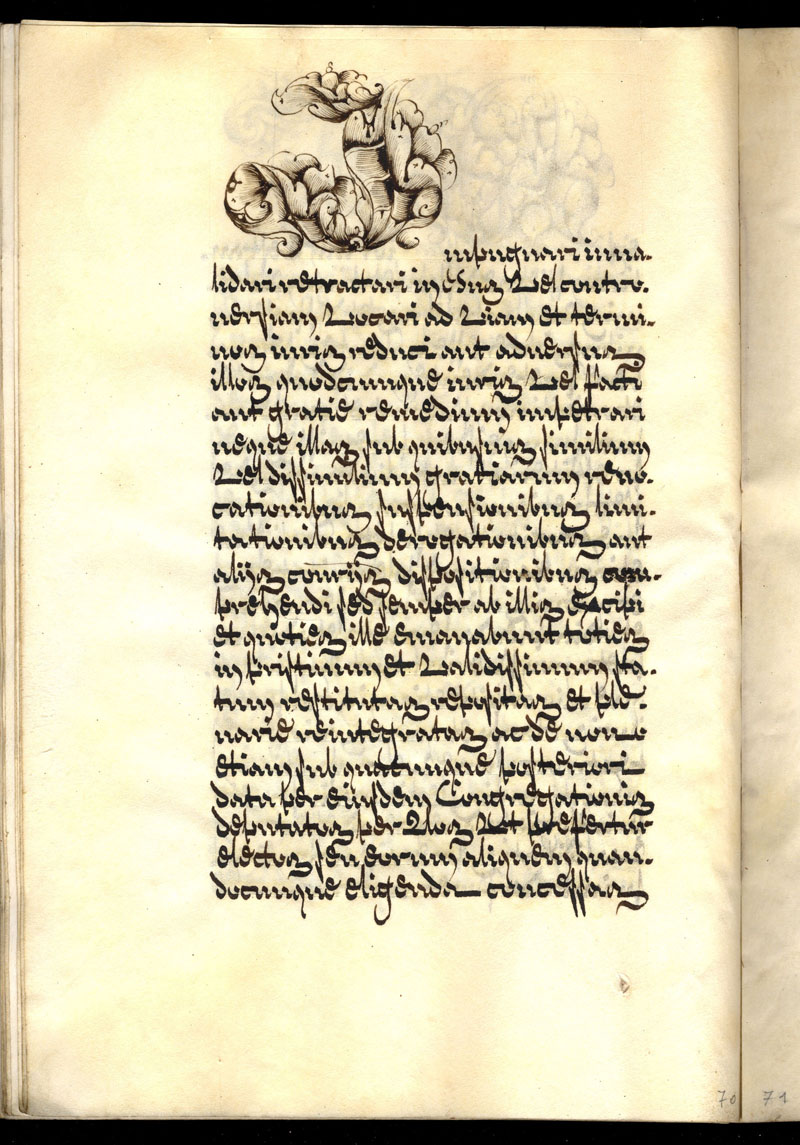 Impugnari inua-
lidari retractari in eius vel contro-
uersiam vocari ad viam et termi-
nos iuris reduci aut aduersus
illos quodcunque iuris vel facti
aut gratie remedium impetrari
neque illas sub quibusuis similium
vel dissimilium gratiarum reuo-
cationibus suspensionibus limi-
tationibus derogationibus aut
alijs contrijs dispositionibus com-
prehendi sed semper ab illis excipi
et quoties ille emanabunt toties
in pristinum et validissimum sta-
tum restitutas repositas et ple-
narie reintegratas ac de nouo
etiam sub quacunque posteriori
data per eiusdem Congregationis
deputatos per vos vt prefertur
electos seu eorum aliquem quan-
documque eligenda concessas
70 71